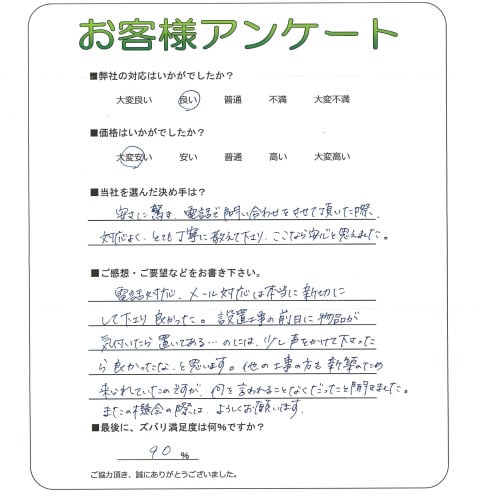 お客様アンケート
■弊社の対応はいかがでしたか?
大変良い 良い 普通 不満 大変不満
■価格はいかがでしたか?
大変安い 安い 普通 高い 大変高い
■当社を選んだ決め手は?
安さに驚き、電話で問い合わせをさせて頂いた際、
対応よく、とても丁寧に教えて下さり、ここなら安心と思えました。
■ご感想・ご要望などをお書き下さい。
電話対応、メール対応は本当に親切に
して下さり良かった。設置工事の前日に物品が
気付いたら置いてある…のには、少し声をかけて下さった
ら良かったな、と思います。他の工事の方も新築のため
来られていたのですが、何を言われることなくだったと聞きました。
またの機会の際は、よろしくお願いします。
■最後に、ズバリ満足度は何%ですか?
90 %
ご協力頂き、誠にありがとうございました。